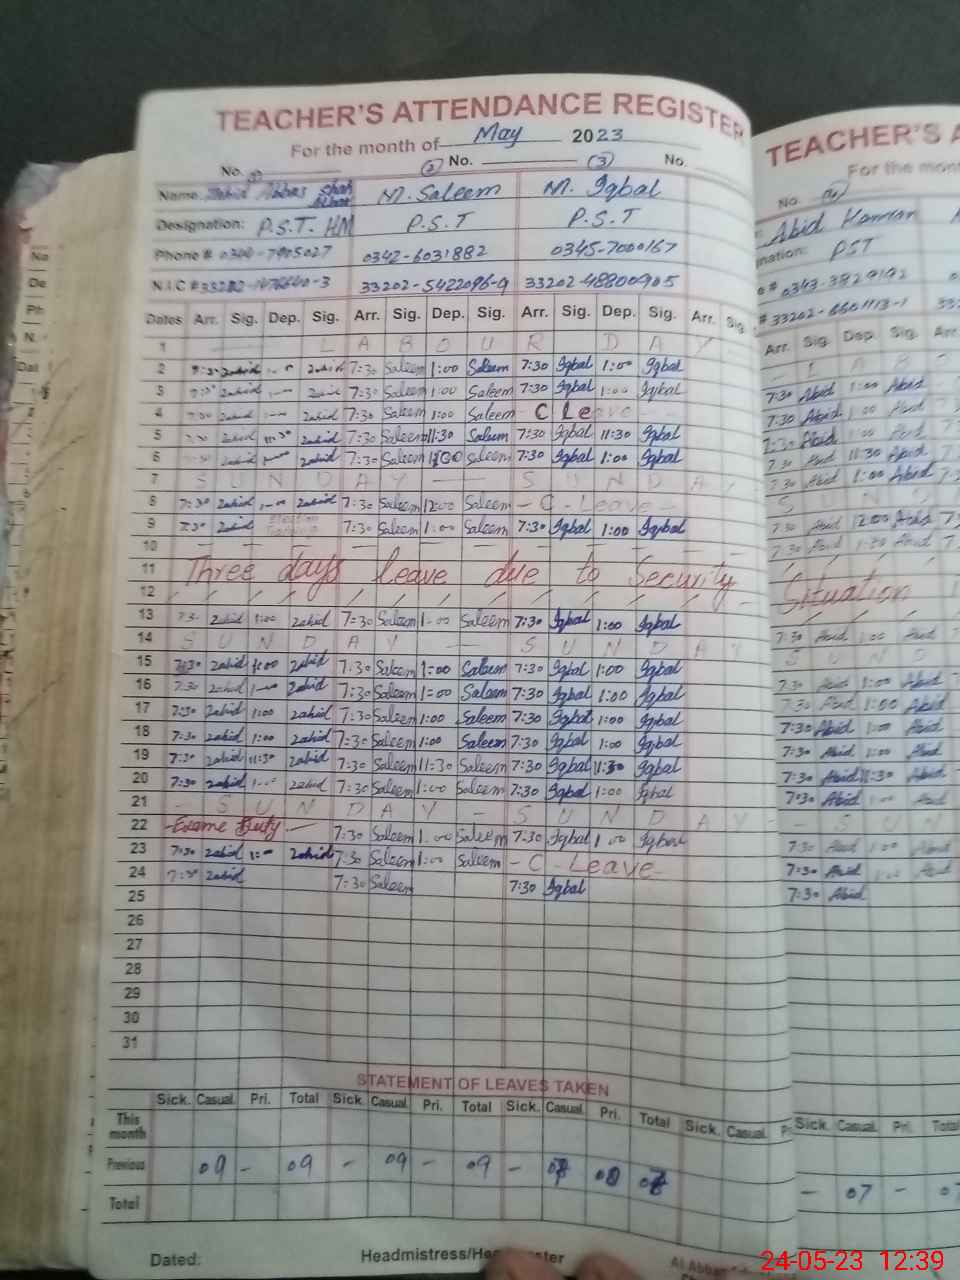 TEACHER'S ATTENDANCE REGISTER
For the month of May 2023
No. ① ② No. ③ No.
Name Abbas Shah M. Saleem M. Iqbal
Designation: P.S.T. HM P.S.T P.S.T
Phone # 0342-6031882 0345-7000167
N.I.C # 33202-5422096-9 33202-48800905
Dates Arr. Sig. Dep. Sig. Arr. Sig. Dep. Sig. Arr. Sig. Dep. Sig. Arr. Sig
1 L A B O U R D A Y
2 zahid zahid 7:30 Saleem 1:00 Saleem 7:30 Iqbal 1:00 Iqbal
3 zahid zahid 7:30 Saleem 1:00 Saleem 7:30 Iqbal 1:00 Iqbal
4 zahid zahid 7:30 Saleem 1:00 Saleem - C Leave - -
5 zahid 11:30 zahid 7:30 Saleem 11:30 Saleem 7:30 Iqbal 11:30 Iqbal
6 zahid zahid 7:30 Saleem 1:00 Saleem 7:30 Iqbal 1:00 Iqbal
7 S U N D A Y — — S U N D A Y
8 7:30 zahid 1-00 zahid 7:30 Saleem 12:00 Saleem - C - Leave -
9 7:30 zahid Election 7:30 Saleem 1:00 Saleem 7:30 Iqbal 1:00 Iqbal
10
11 Three days leave due to Security
12
13 7:30 zahid 1:00 zahid 7:30 Saleem 1-00 Saleem 7:30 Iqbal 1:00 Iqbal
14 S U N D A Y — S U N D A Y
15 7:30 zahid 1:00 zahid 7:30 Saleem 1:00 Saleem 7:30 Iqbal 1:00 Iqbal
16 7:30 zahid 1-00 zahid 7:30 Saleem 1:00 Saleem 7:30 Iqbal 1:00 Iqbal
17 7:30 zahid 1:00 zahid 7:30 Saleem 1:00 Saleem 7:30 Iqbal 1:00 Iqbal
18 7:30 zahid 1:00 zahid 7:30 Saleem 1:00 Saleem 7:30 Iqbal 1:00 Iqbal
19 7:30 zahid 11:30 zahid 7:30 Saleem 11:30 Saleem 7:30 Iqbal 11:30 Iqbal
20 7:30 zahid 1:00 zahid 7:30 Saleem 1:00 Saleem 7:30 Iqbal 1:00 Iqbal
21 - S U N D A Y - S U N D A Y -
22 - Exame Duty - 7:30 Saleem 1.00 Saleem 7:30 Iqbal 1 00 Iqbal
23 7:30 zahid 1:00 zahid 7:30 Saleem 1:00 Saleem - C - Leave -
24 7:30 zahid 7:30 Saleem 7:30 Iqbal
25
26
27
28
29
30
31
STATEMENT OF LEAVES TAKEN
Sick. Casual. Pri. Total Sick. Casual. Pri. Total Sick. Casual. Pri. Total Sick. Casual.
This month
Previous 09 - 09 - 09 - 09 -
Total
Dated: Headmistress/
TEACHER'S A
For the mont
No. ④
Abid PST
0343-3829192
# 33202-6601113-1
Arr. Sig. Dep. Sig. Arr.
7:30 Abid 1:00 Abid
7:30 Abid 1:00 Abid
7:30 Abid 1:00 Abid
7:30 Abid 11:30 Abid
7:30 Abid 1:00 Abid
S U N D
7:30 Abid 12:00 Abid
7:30 Abid 1:00 Abid
Situation
7:30 Abid 1:00 Abid
S U N D
7:30 Abid 1:00 Abid
7:30 Abid 1:00 Abid
7:30 Abid 1:00 Abid
7:30 Abid 1:00 Abid
7:30 Abid 11:30 Abid
7:30 Abid 1:00 Abid
- - S U N
7:30 Abid 1:00 Abid
7:30 Abid 1:00 Abid
7:30 Abid
Sick. Casual. Pri. Tota
- 07 -
24-05-23 12:39